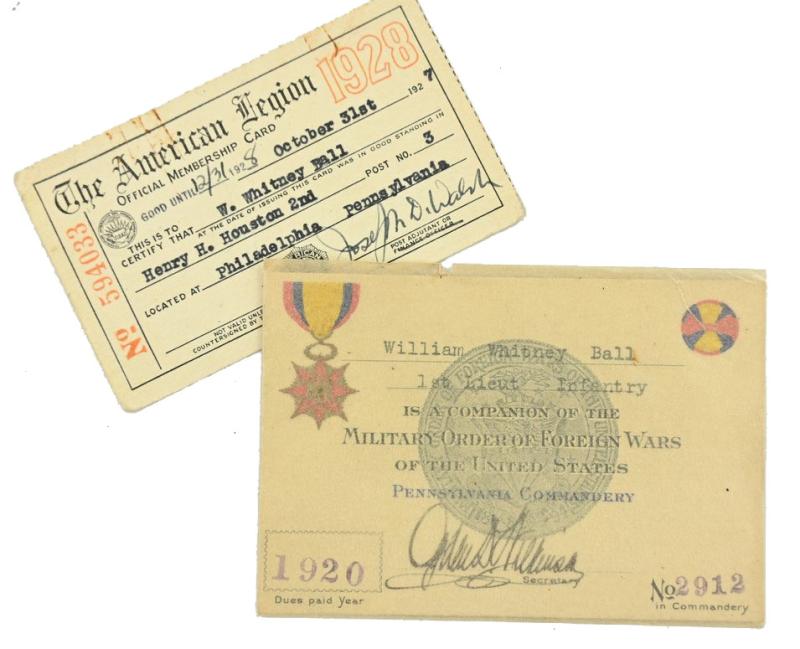 The American Legion
1928
OFFICIAL MEMBERSHIP CARD
GOOD UNTIL 12/31 1928 October 31st 1927
THIS IS TO
CERTIFY THAT W. Whitney Ball
AT THE DATE OF ISSUING THIS CARD WAS IN GOOD STANDING IN
Henry H. Houston 2nd POST NO. 3
LOCATED AT Philadelphia Pennsylvania
Joseph D. Walsh
POST ADJUTANT OR
FINANCE OFFICER
NOT VALID
COUNTERSIGNED BY
No. 594033
William Whitney Ball
1st Lieut Infantry
IS A COMPANION OF THE
MILITARY ORDER OF FOREIGN WARS
OF THE UNITED STATES
PENNSYLVANIA COMMANDERY
Secretary
1920
Dues paid Year
No 2912
in Commandery